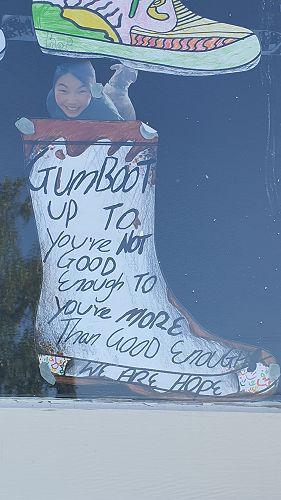 GumBooT
UP TO
you're NOT
GOOD
Enough TO
you're MORE
Than GOOD Enough
WE ARE HOPE